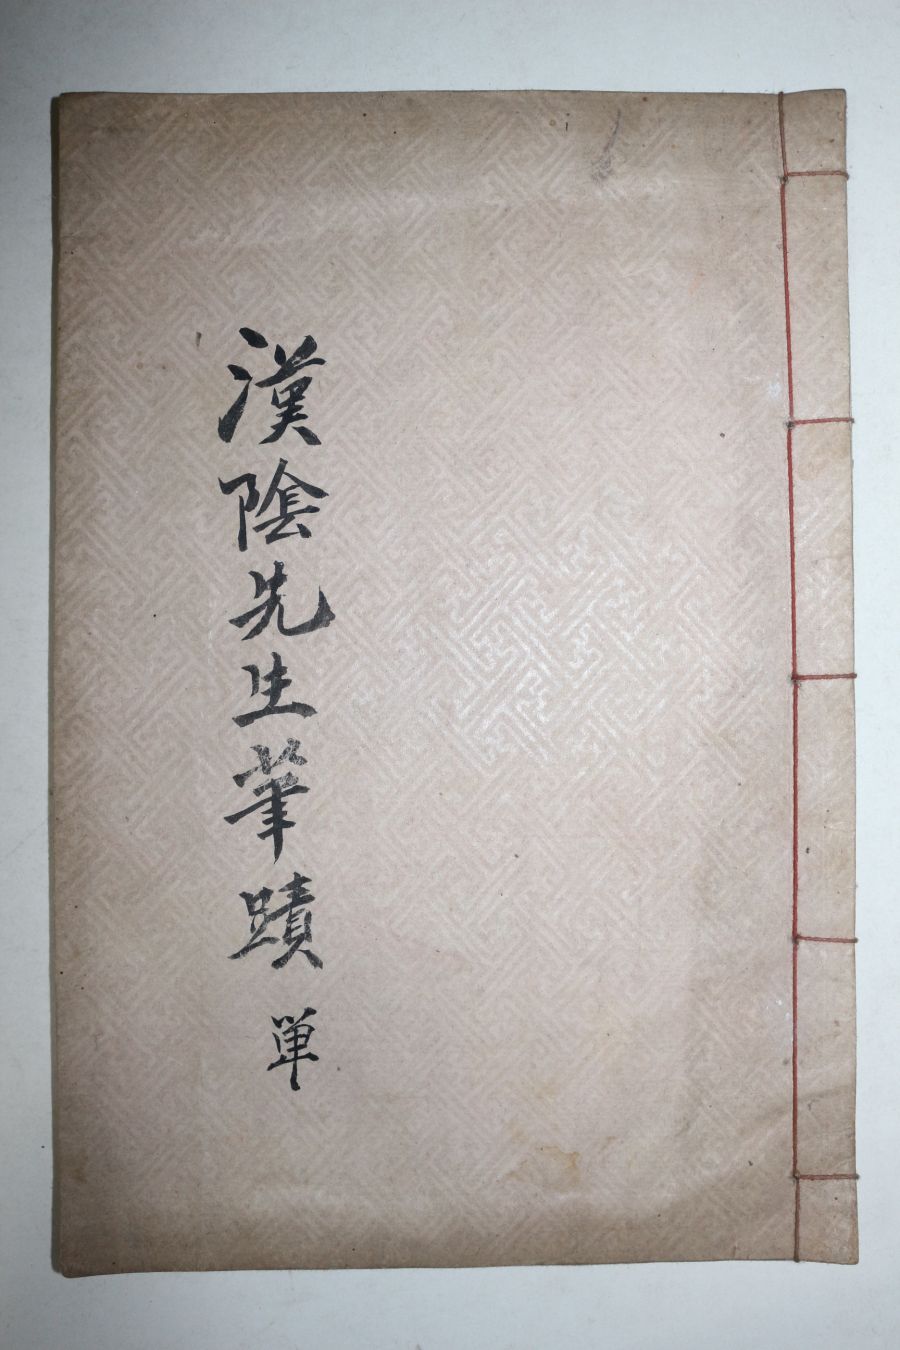 漢陰先生筆蹟 単